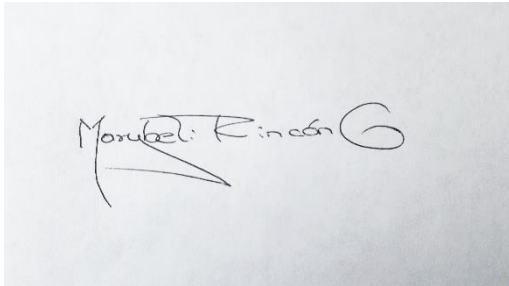 Marybeli Rincón G